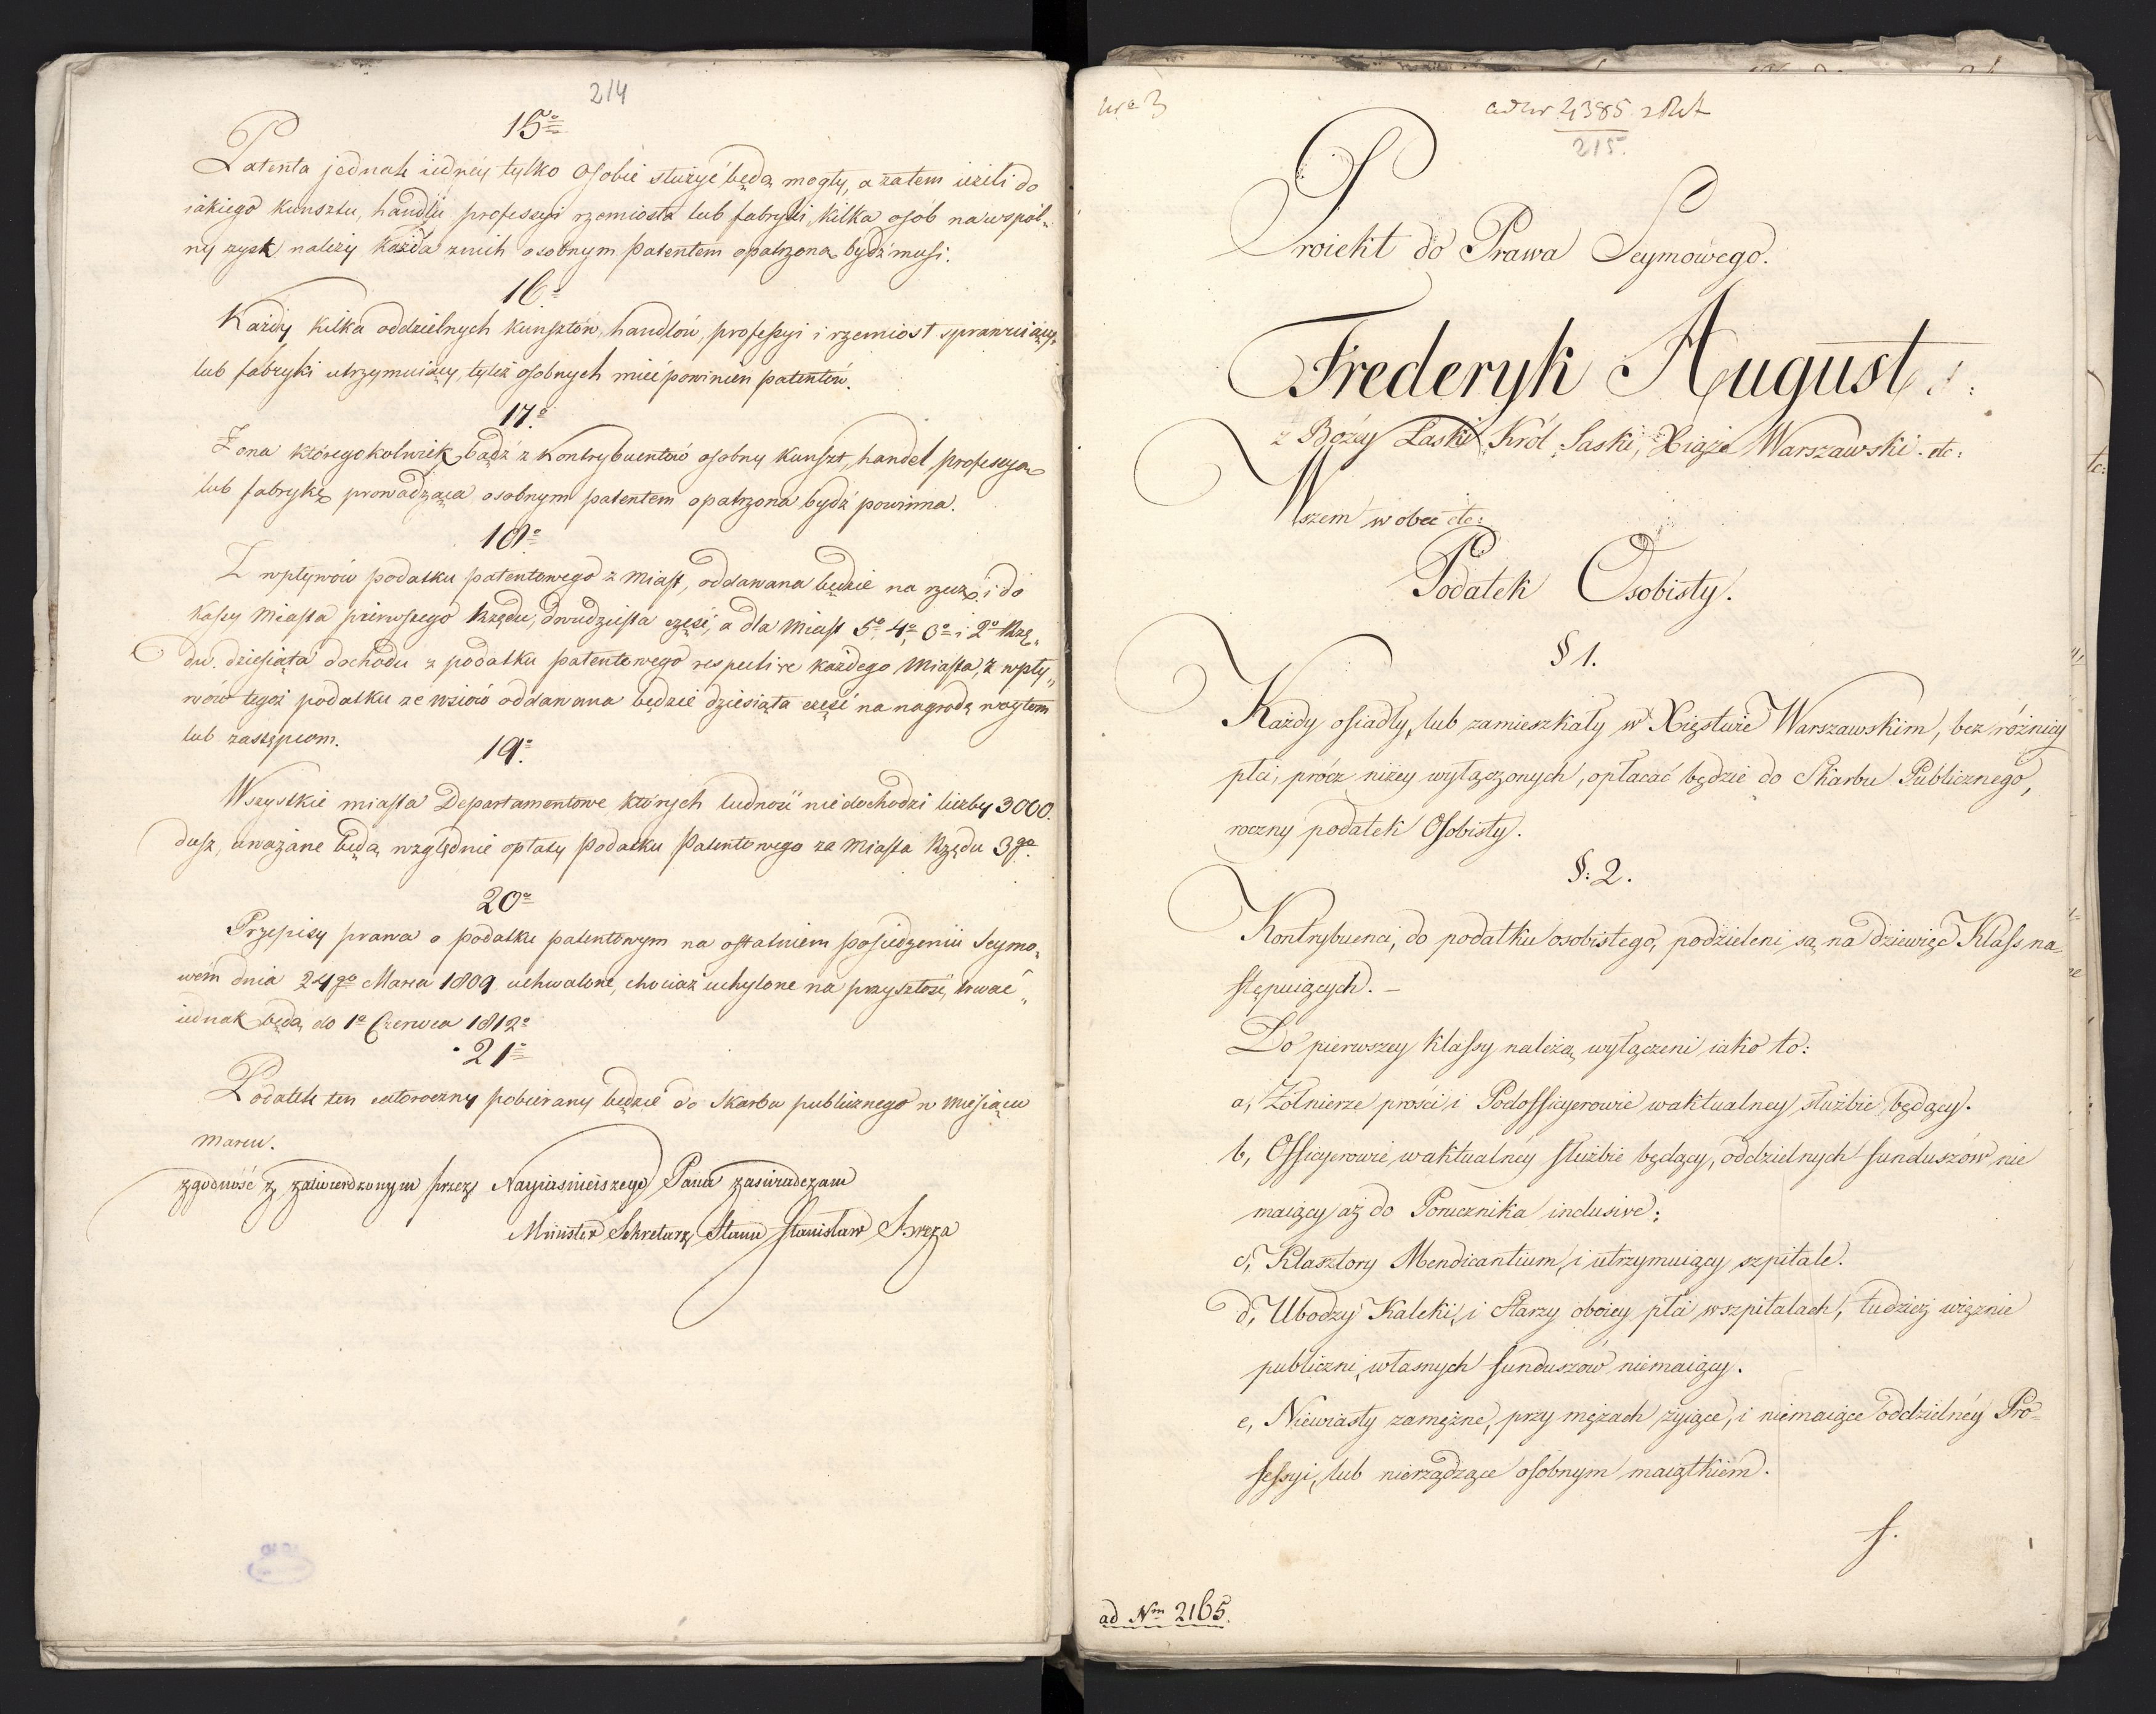 214
15º
Patenta jednak iedney tylko Osobie służyć będą mogły, a zatem ieżeli do
iakiego kunsztu, handlu professyi rzemiosła lub fabryki, kilka osób na wspól-
ny zysk należy każda z nich osobnym patentem opatrzona bydź musi.
16º
Każdy kilka oddzielnych kunsztów, handlów, professyi i rzemiosł sprawuiący,
lub fabryki utrzymuiący, tyleż osobnych mieć powinien patentów.
17º
Żona któregokolwiek bądź z Kontrybuentów osobny kunszt, handel professyą
lub fabrykę prowadząca osobnym patentem opatrzona bydź powinna.
18º
Z wpływów podatku patentowego z Miast, oddawana będzie na rzecz i do
Kassy Miasta pierwszego Rzędu, dwudziesta część, a dla Miast 5º 4º 3º i 2º Rzę-
du dziesiąta dochodu z podatku patentowego respective każdego Miasta, z wpły-
wów tegoż podatku ze wsiów oddawana będzie dziesiąta część na nagrodę woytom
lub zastępcom.
19º
Wszystkie miasta Departamentowe których ludność nie dochodzi liczby 3000.
dusz, uważane będą względnie opłaty Podatku Patentowego za Miasta Rzędu 3go
20º
Przepisy prawa o podatku patentowym na ostatniem posiedzeniu Seymo-
wém dnia 24go Marca 1809 uchwalone, chociaż uchylone na przyszłość, trwać
iednak będą do 1º Czerwca 1812º
21º
Podatek ten całoroczny pobierany będzie do Skarbu publicznego w Miesiącu
Marcu.
Zgodność z zatwierdzonym przez Nayiaśnieiszego Pana zaświadczam
Minister Sekretarz Stanu Stanisław Breza
Nro 3
ad Nr 4385
215.
Proiekt do Prawa Seymowego.
Frederyk August
z Bożey Łaski Król Saski, Xiąże Warszawski. etc:
Wszem w obec etc:
Podatek Osobisty.
§ 1.
Każdy osiadły, lub zamieszkały w Xięstwie Warszawskim, bez różnicy
płci, prócz niżey wyłączonych, opłacać będzie do Skarbu Publicznego,
roczny podatek Osobisty.
§: 2.
Kontrybuenci, do podatku osobistego, podzieleni są na dziewięć Klass na-
stępuiących. –
Do pierwszey klassy należą wyłączeni iako to:
a, Żołnierze prości i Podofficyerowie w aktualney służbie będący.
b, Officyerowie w aktualnéy służbie będący, oddzielnych funduszów nie
maiący aż do Porucznika inclusive;
c, Klasztory Mendicantium, i utrzymuiący szpitale.
d, Ubodzy Kaleki, i Starzy oboiey płci w szpitalach, tudzież więznie
publiczni, własnych funduszów niemaiący.
e, Niewiasty zamężne, przy mężach żyiące, i niemaiące oddzielnéy Pro-
fessyi, lub nierządzące osobnym maiątkiem.
f.
ad Nm 2165.